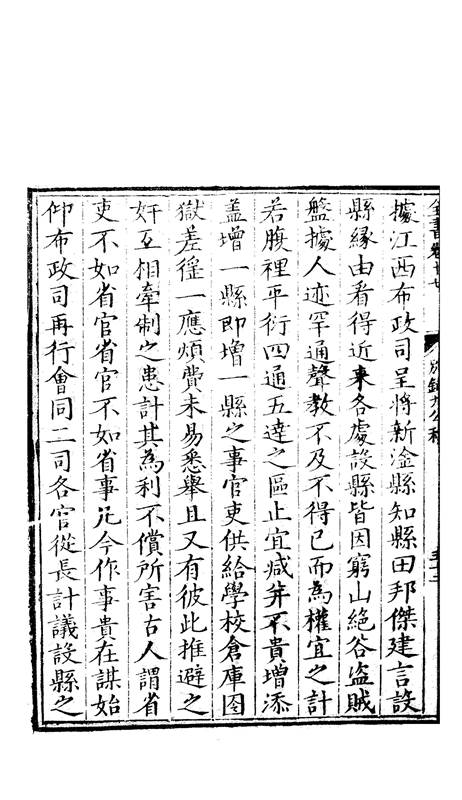 據江西布政司呈將新淦縣知縣田邦傑建言設
縣緣由看得近來各處設縣皆因窮山絶谷盗賊
盤據人迹罕通聲教不及不得已而為權宜之計
若腹裡平衍四通五達之區止宜减并不貴增添
盖增一縣即增一縣之事官吏供給學校倉庫囹
獄差徭一應煩費未易悉舉且又有彼此推避之
奸互相牽制之患計其為利不償所害古人謂省
吏不如省官省官不如省事凢今作事貴在謀始
仰布政司再行會同二司各官從長計議設縣之